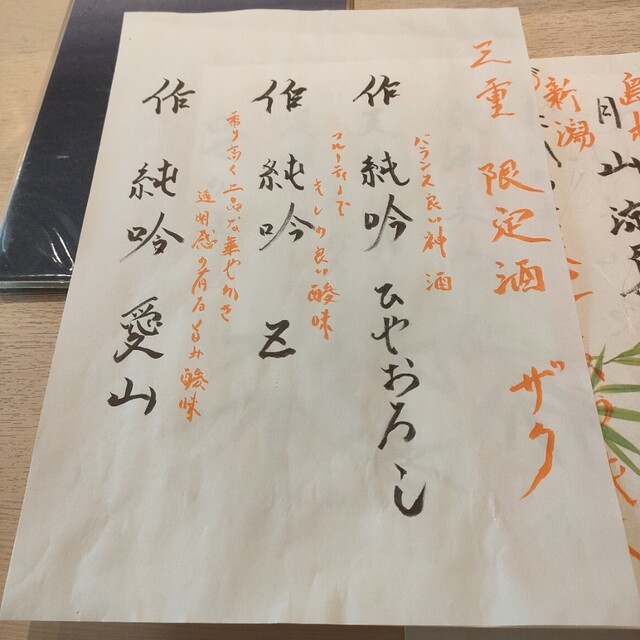 三重 限定酒 ザク
作 純吟 ひやおろし
バランス良い神酒
作 純吟 Z
フルーティーで
キレの良い酸味
香り高く上品な
透明感のある 酸味
作 純吟 愛山
新潟
月山